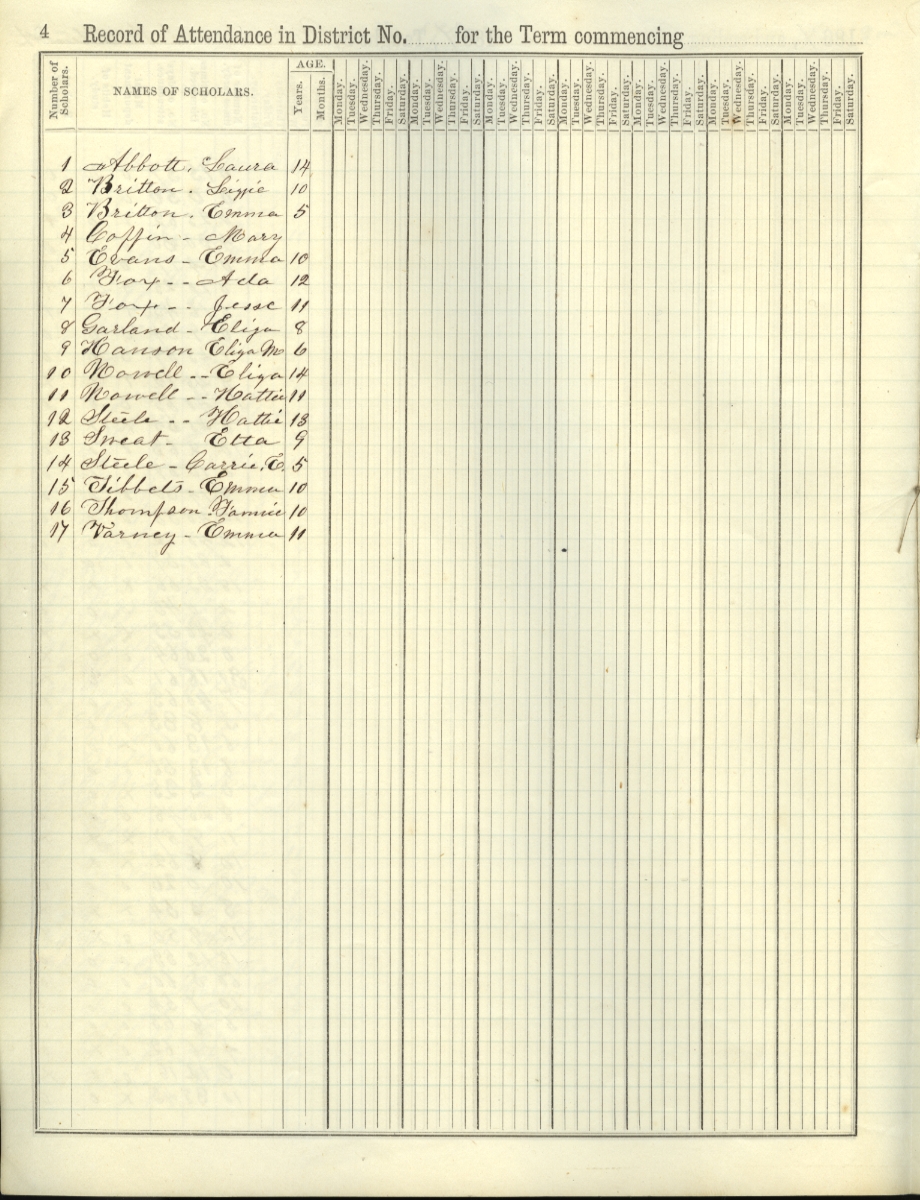 4 Record of Attendance in District No. for the Term commencing
Number of Scholars. NAMES OF SCHOLARS. AGE. Years. Months. Monday. Tuesday. Wednesday. Thursday. Friday. Saturday. Monday. Tuesday. Wednesday. Thursday. Friday. Saturday. Monday. Tuesday. Wednesday. Thursday. Friday. Saturday. Monday. Tuesday. Wednesday. Thursday. Friday. Saturday. Monday. Tuesday. Wednesday. Thursday. Friday. Saturday. Monday. Tuesday. Wednesday. Thursday. Friday. Saturday. Monday. Tuesday. Wednesday. Thursday. Friday. Saturday.
1 Abbott, Laura 14
2 Britton. Lizzie 10
3 Britton. Emma 5
4 Coffin - Mary
5 Evans - Emma 10
6 Fox - - Ada 12
7 Fox - - Jesse 11
8 Garland - Eliza 8
9 Hanson Eliza M 6
10 Nowell - - Eliza 14
11 Nowell - - Hattie 11
12 Steele - - Hattie 13
13 Sweat - Etta 9
14 Steele - Carrie. E. 5
15 Tibbets - Emma 10
16 Thompson. Fannie 10
17 Varney - Emma 11